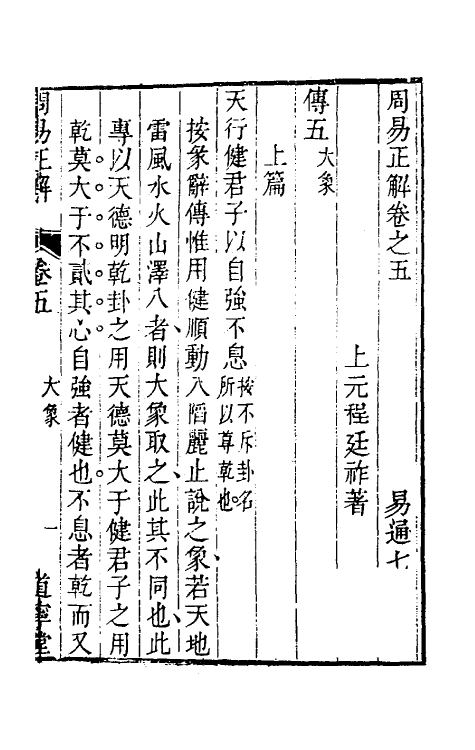 周易正解卷之五 易通七
上元程廷祚著
傳五 大象
上篇
天行健君子以自強不息 按不斥卦名所以尊乾也
按彖辭傳惟用健順動入陷麗止說之象若天地
雷風水火山澤八者則大象取之此其不同也此
專以天德明乾卦之用天德莫大于健君子之用
乾莫大于不貳其心自強者健也不息者乾而又
周易正解 卷五 大象 一 道寧堂